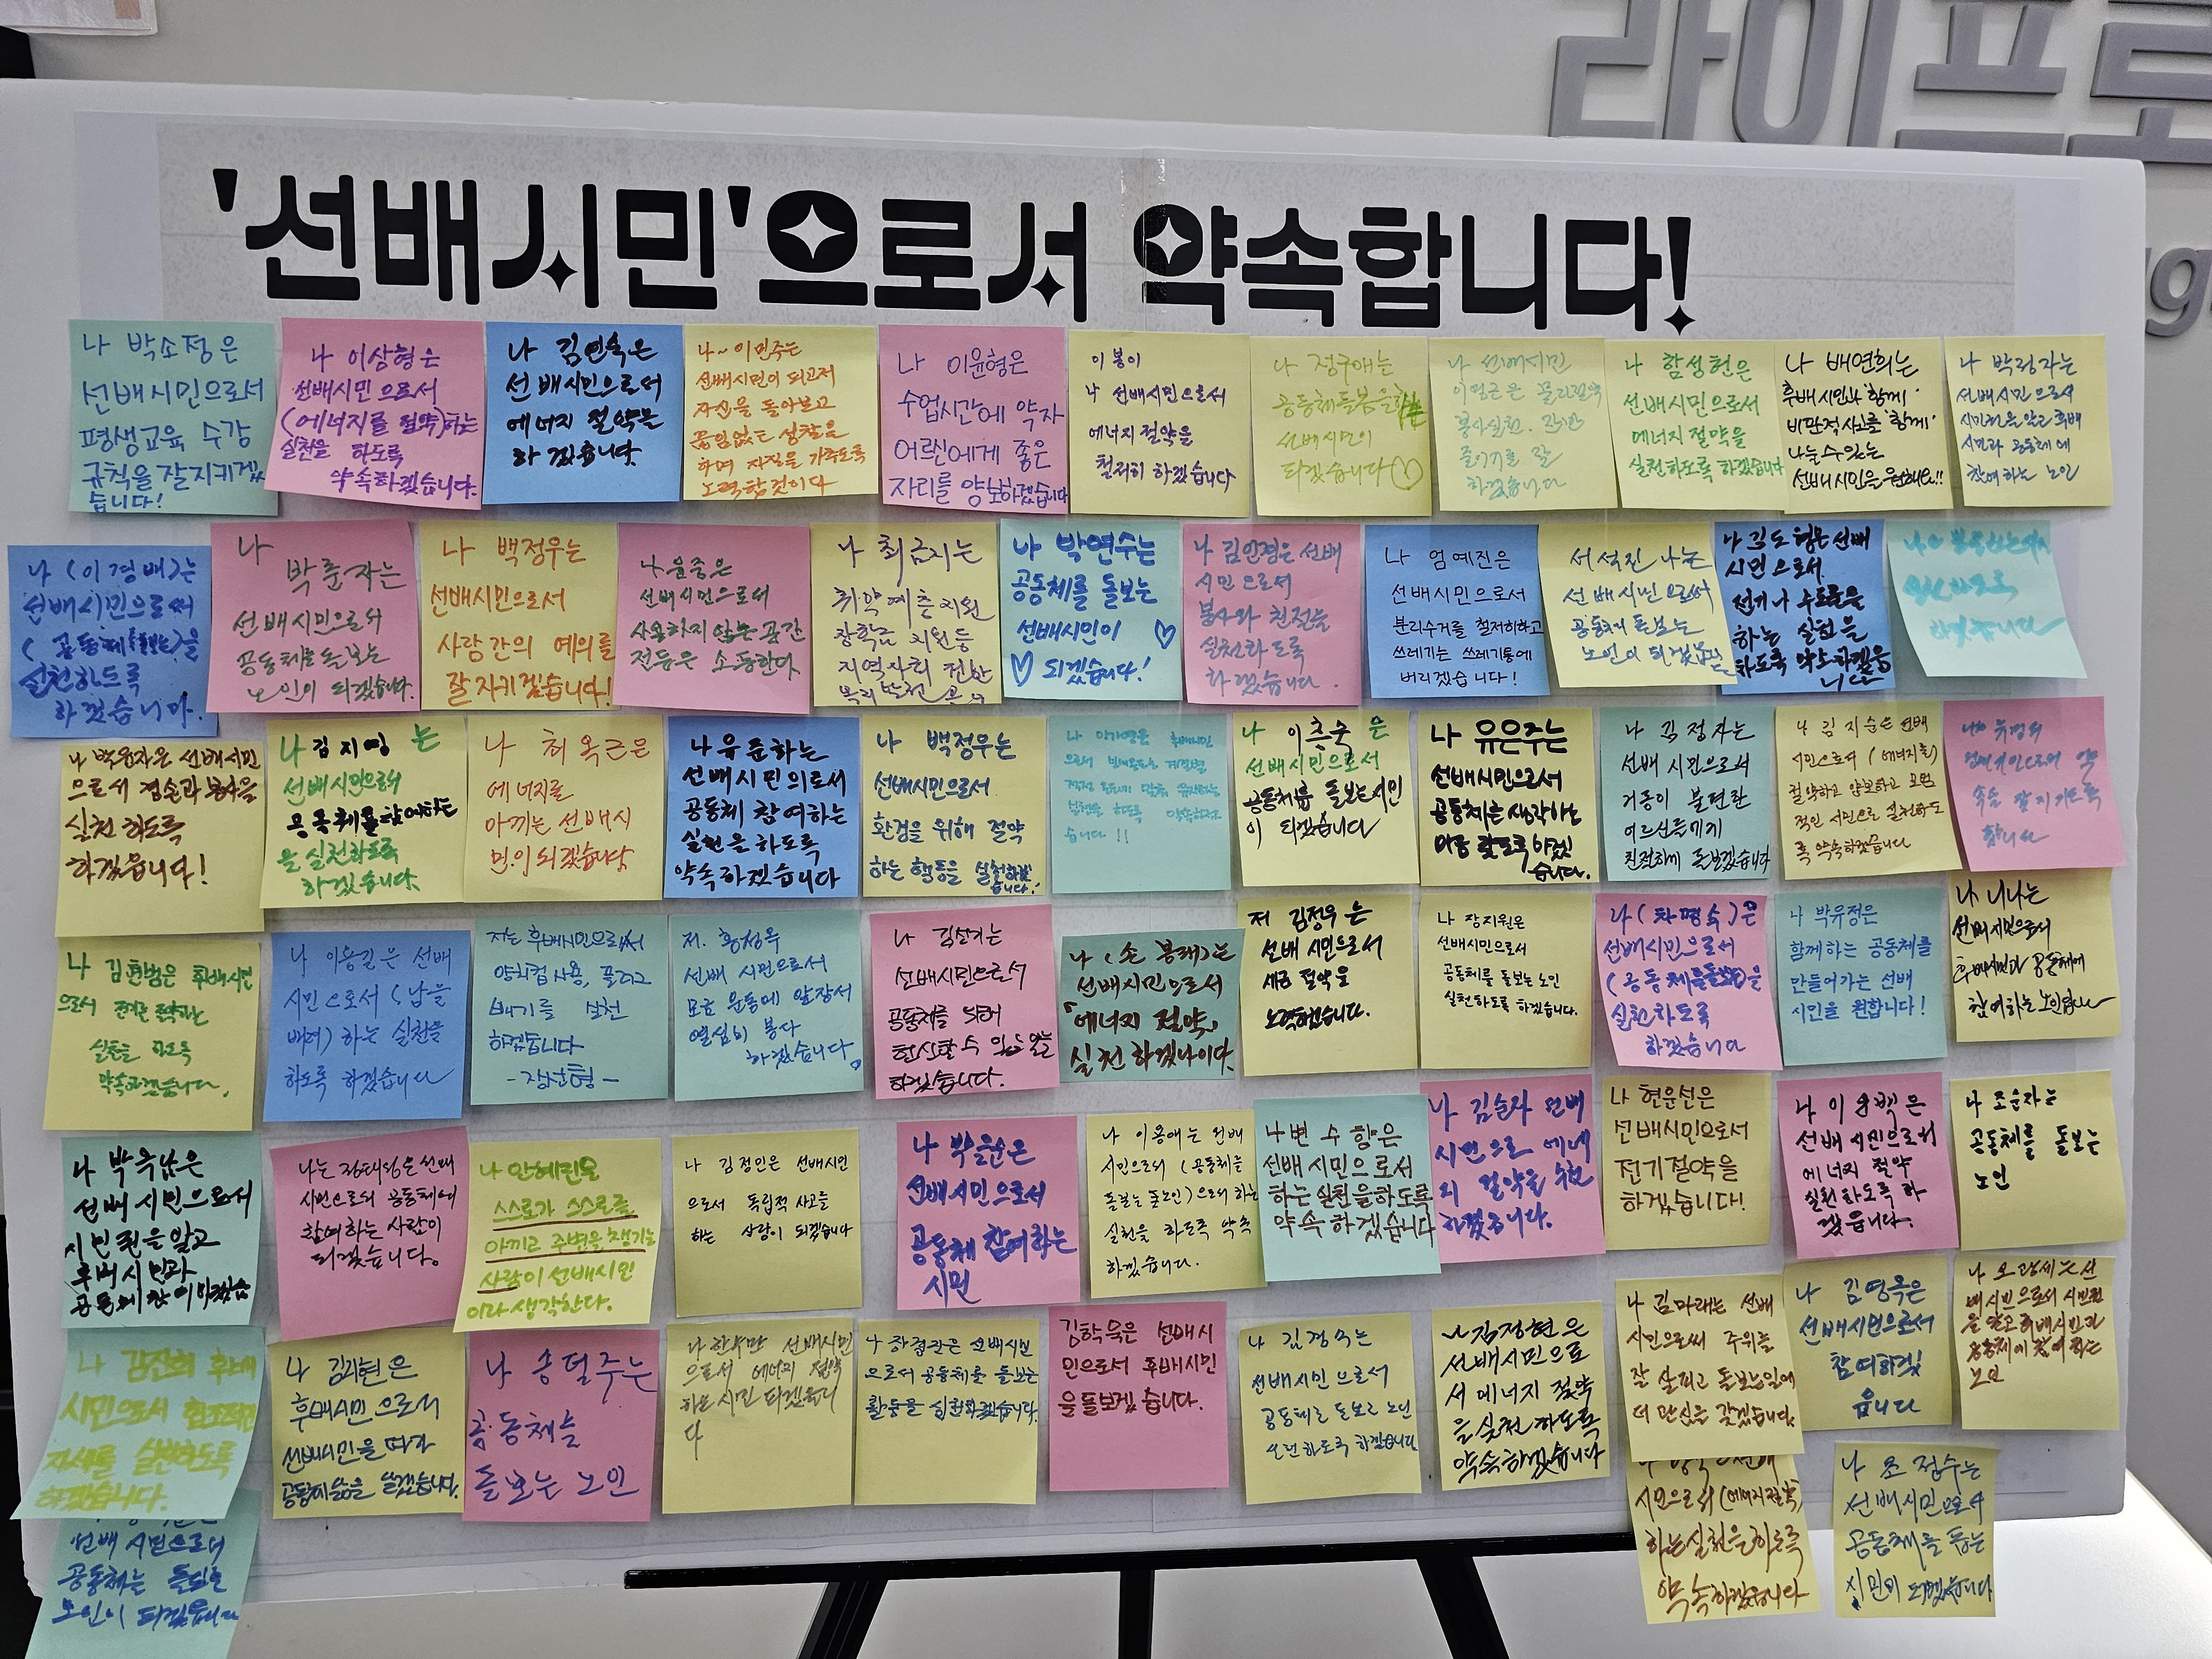 라이프
'선배시민'으로서 약속합니다!
나 박소정은
선배시민으로서
평생교육 수강
규칙을 잘 지키겠
습니다!
나 이상형은
선배시민으로서
(에너지를 절약)하는
실천을 하도록
약속하겠습니다.
나 김인숙은
선배시민으로서
에너지 절약을
하겠습니다.
나~ 이민주는
선배시민이 되고저
자신을 돌아보고
끊임없는 성찰을
하며 자질을 가추도록
노력할 것이다
나 이윤형은
수업시간에 약자
어르신에게 좋은
자리를 양보하겠습니다
이봉이
나 선배시민으로서
에너지 절약을
철저히 하겠습니다
나 정구애는
공동체돌봄을
선배시민이
되겠습니다
나 선배시민
봉사실천.
줄이기를 잘
하겠습니다
나 함성현은
선배시민으로서
에너지 절약을
실천하도록 하겠습니다
나 배연희는
후배시민과 '함께'
비판적 사고를 '함께'
나눌 수 있는
선배시민을 원해요!!
나 박령자는
선배시민으로서
시민권을 알고 후배
시민과 공동체에
참여하는 노인
나 (이경배)는
선배시민으로써
(공동체를 돌보는)을
실천하도록
하겠습니다.
나
박춘자는
선배시민으로서
공동체를 돌보는
노인이 되겠습니다.
나 백정우는
선배시민으로서
사람간의 예의를
잘 지키겠습니다!
나 윤중은
선배시민으로서
사용하지 않는 공간
전등은 소등한다.
나 최금지는
취약계층 지원
장학금 지원 등
지역사회 전반
나 박연수는
공동체를 돌보는
선배시민이
되겠습니다!
나 김인경은 선배
시민으로서
봉사와 친절을
실천하도록
하겠습니다.
나 엄예진은
선배시민으로서
분리수거를 철저히하고
쓰레기는 쓰레기통에
버리겠습니다!
서석진 나는
선배시민으로서
공동체 돌보는
노인이 되겠습니다
나 김도형은 선배
시민으로서
전기나 수도등을
하는 실천을
하도록 약속하겠습
니다
하겠습니다
나 박옥자은 선배시민
으로서 겸손과 봉사을
실천하도록
하겠습니다!
나 김지영는
선배시민으로서
공동체를 참여하는
을 실천하도록
하겠습니다.
나 최옥근은
에너지를
아끼는 선배시
민이 되겠습니다.
나 유준하는
선배시민의로서
공동체 참여하는
실천을 하도록
약속하겠습니다
나 백정우는
선배시민으로서
환경을 위해 절약
하는 행동을 실천하겠
습니다!
습니다!!
나 이춘숙은
선배시민으로서
공동체를 돌보는시민
이 되겠습니다
나 유은주는
선배시민으로서
공동체는 생각하는
마음 갖도록 하겠
습니다.
나 김정자는
선배 시민으로서
거동이 불편한
어르신들에게
친절하게 돌보겠습니다
나 김지순은 선배
시민으로서 (에너지를)
절약하고 양보하고 모범
적인 시민으로 실천하도
록 약속하겠습니다
나는
선배시민으로서 약
속을 잘 지키도록
합니다
나 김현범은 후배시민
으로서
실천을 하도록
약속하겠습니다.
나 이용길은 선배
시민으로서 (남을
배려) 하는 실천을
하도록 하겠습니다
저는 후배시민으로서
양치컵사용, 플러그
빼기를 실천
하겠습니다
저. 황정옥
선배 시민으로서
모금 운동에 앞장서
열심히 봉사
하겠습니다.
나 김선기는
선배시민으로서
공동체를 되어
헌신할 수 있는 일을
하겠습니다.
나 (손봉래)는
선배시민으로서
「에너지 절약」
실천 하겠나이다.
저 김정우는
선배 시민으로서
세금 절약을
노력하겠습니다.
나 장지원은
선배시민으로서
공동체를 돌보는 노인
실천하도록 하겠습니다.
나 (차평숙)은
선배시민으로서
(공동체를돌봄)을
실천하도록
하겠습니다
나 박유정은
함께하는 공동체를
만들어가는 선배
시민을 원합니다!
나 니나는
선배시민으로서
후배시민과 공동체에
참여하는 노인입니다
나 박옥남은
선배시민으로서
시민권을 알고
후배시민과
나는 정태성은 선배
시민으로서 공동체에
참여하는 사람이
되겠습니다.
나 안혜린은
스스로가 스스로를
아끼고 주변을 챙기는
사람이 선배시민
이라 생각한다.
나 김정인은 선배시민
으로서 독립적 사고를
하는 사람이 되겠습니다
나 박을순은
선배시민으로서
공동체 참여하는
시민
나 이용애는 선배
시민으로서 (공동체를
돌보는 노인)으로서 하는
실천을 하도록 약속
하겠습니다.
나변수향은
선배시민으로서
하는 실천을하도록
약속하겠습니다
나 김순자 선배
시민으로 에너
지 절약을
하겠습니다.
나 현윤선은
선배시민으로서
전기절약을
하겠습니다!
나 이운백은
선배시민으로서
에너지 절약
실천하도록 하
겠습니다.
나 조순자는
공동체를 돌보는
노인
나 김진희 후배
시민으로서
자세를 실천하도록
하겠습니다.
나 김리현은
후배시민으로서
선배시민을 따라
공동체 삶을 살겠습니다.
나 송덕주는
공동체를
돌보는 노인
나 한수만 선배시민
으로서 에너지 절약
하는 시민 되겠습니
다
나 하점관은 선배시민
으로서 공동체를 돌보는
활동을 실천하겠습니다.
김학묵은 선배시
민으로서 후배시민
을 돌보겠습니다.
나 김경숙는
선배시민으로서
공동체를 돌보는 노인
실천하도록 하겠습니다
나 김정현은
선배시민으로
서 에너지 절약
을 실천하도록
약속하겠습니다
나 김미래는 선배
시민으로써 주위를
잘 살피고 돌보는일에
더 관심을 갖겠습니다.
나 김영옥은
선배시민으로서
참여하겠
읍니다
나 오광세는 선
배시민으로서 시민권
을 알고 후배시민과
공동체에 참여하는
노인
선배시민으로서
공동체는 돌보는
노인이 되겠읍니다
시민으로서 (에너지절약)
하는실천을하도록
약속하겠습니다
나 조점수는
선배시민으로서
공동체를 돕는
시민이 되겠습니다